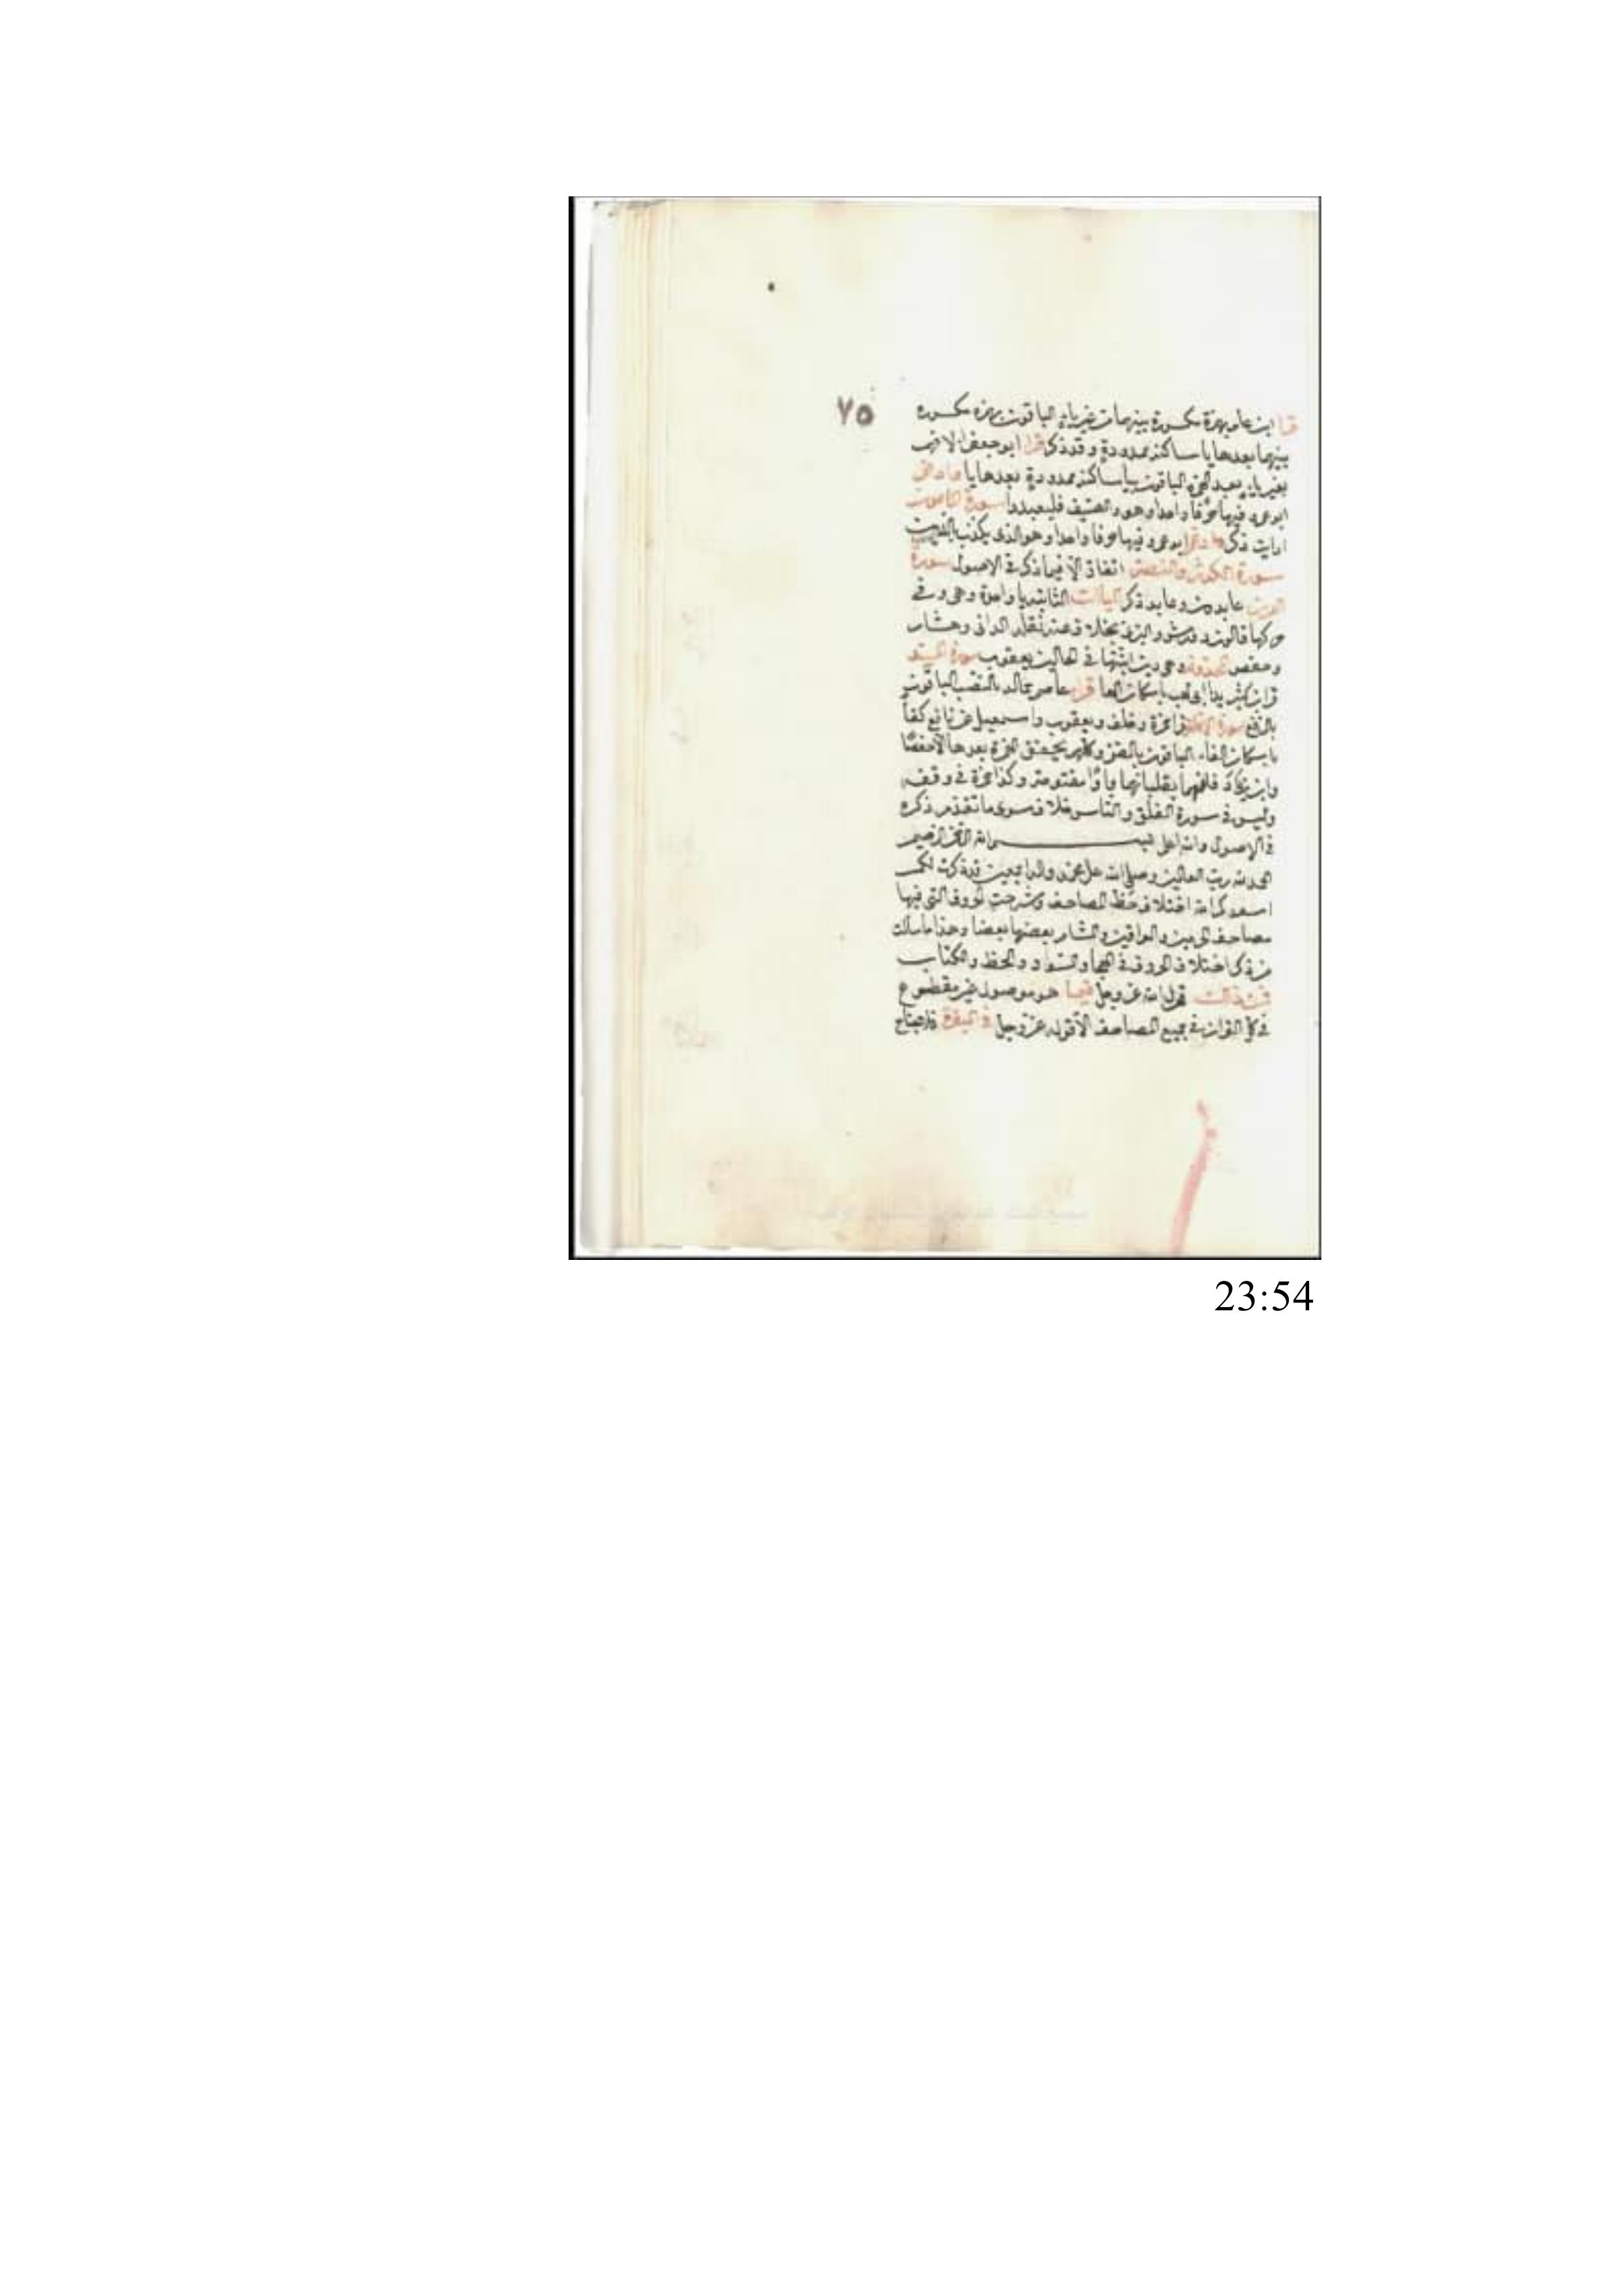 ٧٥
قرا ابن عامر بهمزة مكسورة بينهما من غير ياء الباقون بهمزة مكسورة
بينهما بعدها ياء ساكنة ممدودة وقد ذكر قرا ابو جعفر الافهم
بغير ياء بعد الهمزة الباقون بياء ساكنة ممدودة بعدها يا وادغم
ابو عمرو فيها حرفا واحدا وهو والصيف فليعبدوا سورة الماعون
ارايت ذكر وادغم ابو عمرو فيها حرفا واحدا وهو الذى يكذب بالدين
سورة الكوثر والنصر اتفاق الا فيما ذكر فى الاصول سورة
الدين عابدون وعابد ذكر اليآآت الثابتة يا واحدة وهى ولى
حركها قالون وورش والبزى بخلاف عنه نقله الدانى وهشام
وحفص المحذوفة وهى دين اثبتها فى الحالين يعقوب سورة المسد
قرا ابن كثير يدا ابى لهب باسكان الها قرا عاصم حمالة بالنصب الباقون
بالرفع سورة الاخلاص قرا حمزة وخلف ويعقوب واسمعيل عن نافع كفأ
باسكان الفاء الباقون بالضم وكلهم يحقق الهمزة بعدها الا حفصا
وابن فانهما يقلبانها واوا مفتوحة وكذا حمزة فى وقفه
وليس فى سورة الفلق والناس خلاف سوى ما تقدم ذكره
فى الاصول والله اعلم بسم الله الرحمن الرحيم
الحمد لله رب العالمين وصلى الله على محمد واله اجمعين قد ذكرت لكم
اسعدكم الله اختلاف خط المصاحف وشرحت الحروف التى فيها
مصاحف الحرمين والعراقين والشام بعضها بعضا وهذا ما سالت
من ذكر اختلاف الحروف فى الهجا والسواد والخط والكتاب
فمن ذالك قول الله عز وجل فيما هو موصول غير مقطوع
فى كل القران فى جميع المصاحف الا قوله عز وجل فى البقرة فلا جناح
23:54